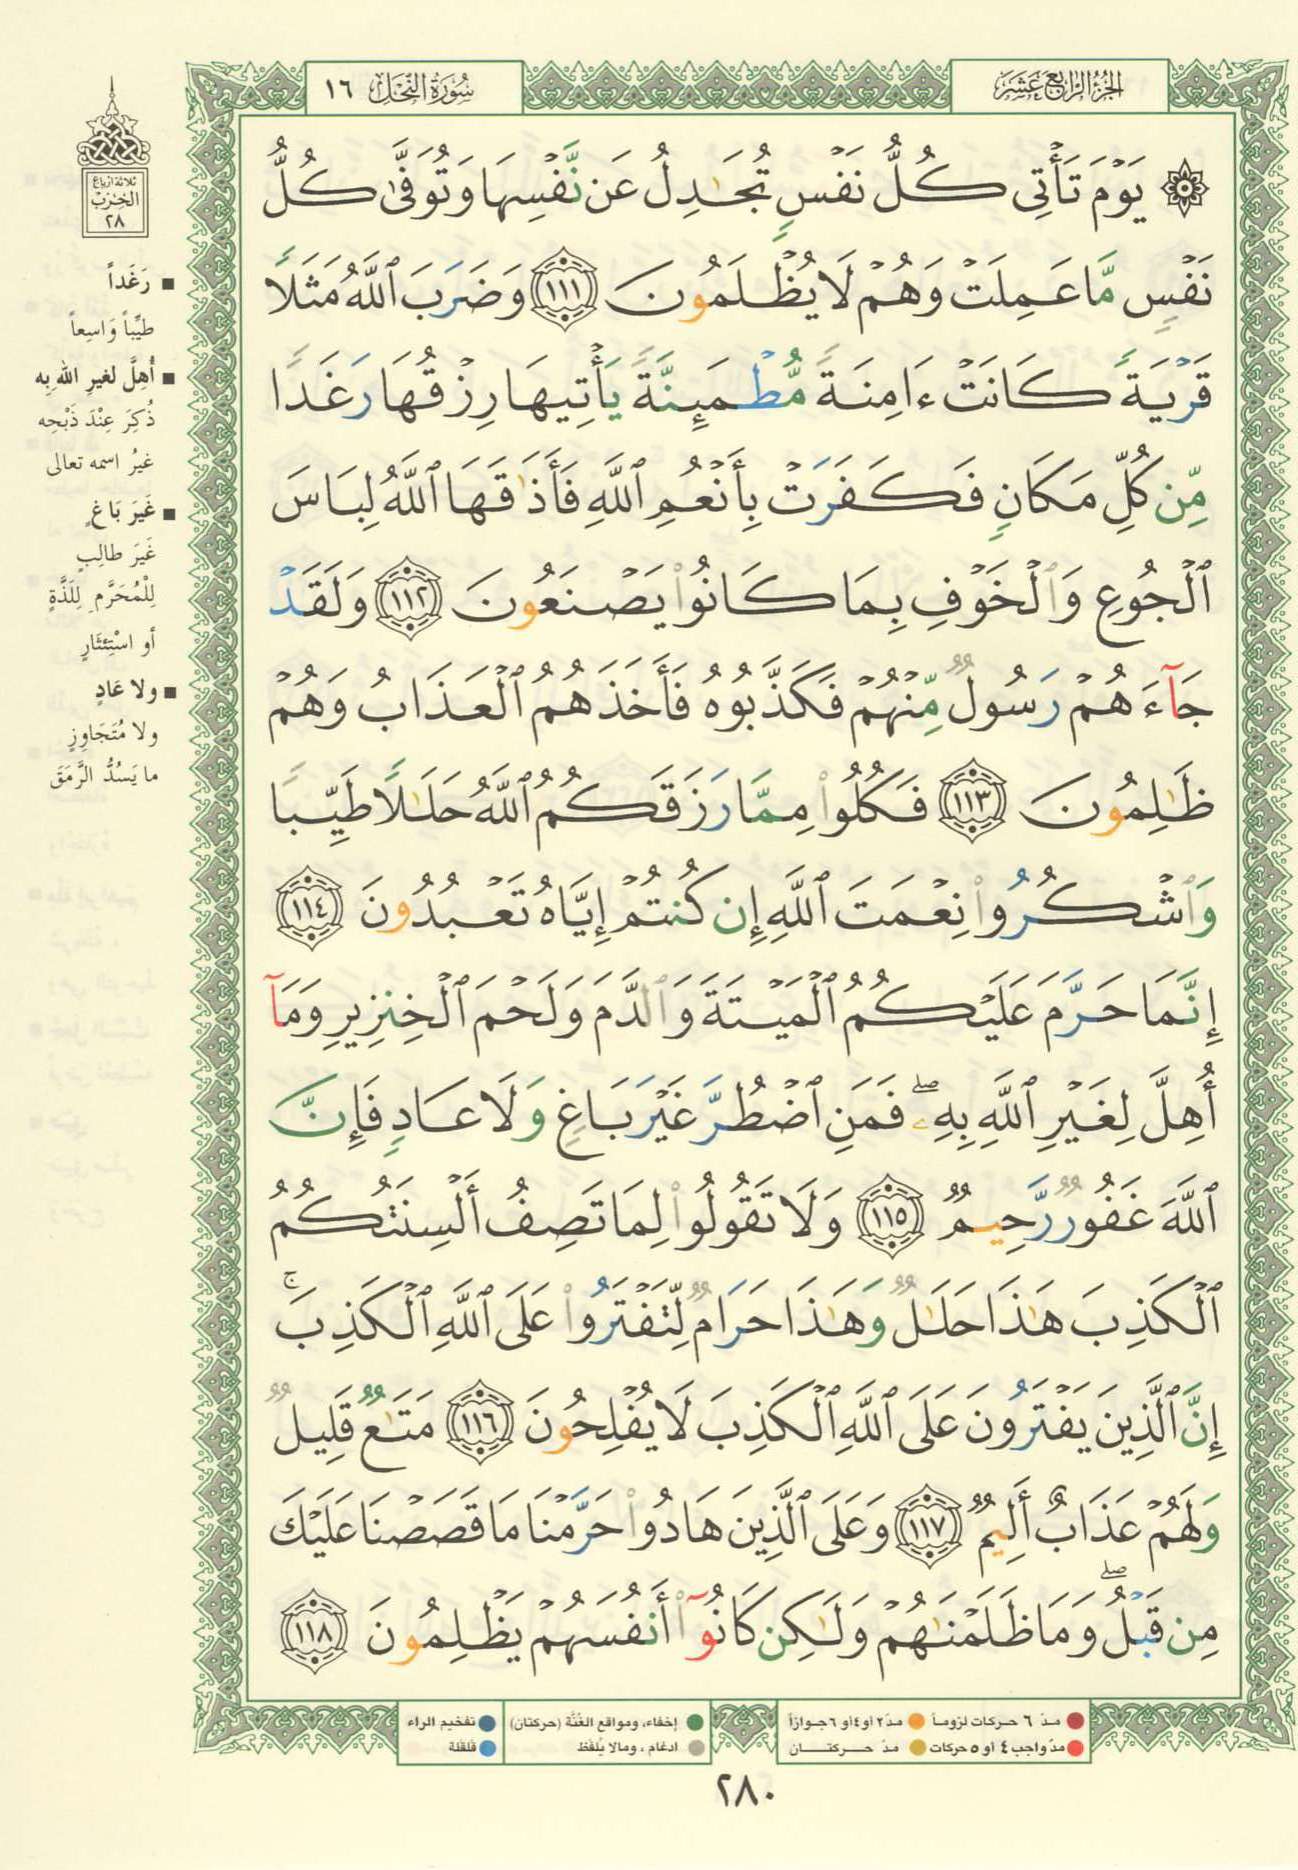 الجزء الرابع عشر
سورة النحل ١٦
۞ يَوْمَ تَأْتِى كُلُّ نَفْسٍ تُجَـٰدِلُ عَن نَّفْسِهَا وَتُوَفَّىٰ كُلُّ
نَفْسٍ مَّا عَمِلَتْ وَهُمْ لَا يُظْلَمُونَ ١١١ وَضَرَبَ ٱللَّهُ مَثَلًا
قَرْيَةً كَانَتْ ءَامِنَةً مُّطْمَئِنَّةً يَأْتِيهَا رِزْقُهَا رَغَدًا
مِّن كُلِّ مَكَانٍ فَكَفَرَتْ بِأَنْعُمِ ٱللَّهِ فَأَذَٰقَهَا ٱللَّهُ لِبَاسَ
ٱلْجُوعِ وَٱلْخَوْفِ بِمَا كَانُوا۟ يَصْنَعُونَ ١١٢ وَلَقَدْ
جَآءَهُمْ رَسُولٌ مِّنْهُمْ فَكَذَّبُوهُ فَأَخَذَهُمُ ٱلْعَذَابُ وَهُمْ
ظَـٰلِمُونَ ١١٣ فَكُلُوا۟ مِمَّا رَزَقَكُمُ ٱللَّهُ حَلَـٰلًا طَيِّبًا
وَٱشْكُرُوا۟ نِعْمَتَ ٱللَّهِ إِن كُنتُمْ إِيَّاهُ تَعْبُدُونَ ١١٤
إِنَّمَا حَرَّمَ عَلَيْكُمُ ٱلْمَيْتَةَ وَٱلدَّمَ وَلَحْمَ ٱلْخِنزِيرِ وَمَآ
أُهِلَّ لِغَيْرِ ٱللَّهِ بِهِۦ ۖ فَمَنِ ٱضْطُرَّ غَيْرَ بَاغٍ وَلَا عَادٍ فَإِنَّ
ٱللَّهَ غَفُورٌ رَّحِيمٌ ١١٥ وَلَا تَقُولُوا۟ لِمَا تَصِفُ أَلْسِنَتُكُمُ
ٱلْكَذِبَ هَـٰذَا حَلَـٰلٌ وَهَـٰذَا حَرَامٌ لِّتَفْتَرُوا۟ عَلَى ٱللَّهِ ٱلْكَذِبَ ۚ
إِنَّ ٱلَّذِينَ يَفْتَرُونَ عَلَى ٱللَّهِ ٱلْكَذِبَ لَا يُفْلِحُونَ ١١٦ مَتَـٰعٌ قَلِيلٌ
وَلَهُمْ عَذَابٌ أَلِيمٌ ١١٧ وَعَلَى ٱلَّذِينَ هَادُوا۟ حَرَّمْنَا مَا قَصَصْنَا عَلَيْكَ
مِن قَبْلُ ۖ وَمَا ظَلَمْنَـٰهُمْ وَلَـٰكِن كَانُوٓا۟ أَنفُسَهُمْ يَظْلِمُونَ ١١٨
ثلاثة أرباع
الحزب
٢٨
■ رَغَداً
طيِّباً وَاسِعاً
■ أُهِلَّ لغيرِ الله بِه
ذُكِرَ عِنْدَ ذَبْحِه
غيرُ اسمه تعالى
■ غَيَرَ بَاغٍ
غَيَرَ طالِبٍ
لِلْمُحَرَّمِ لِلَذَّةٍ
أو اسْتِئثَارٍ
■ ولا عَادٍ
ولا مُتَجَاوِزٍ
ما يَسُدُّ الرَّمَقَ
مدّ ٦ حركات لزوماً
مدّ ٢ أو ٤ أو ٦ جوازاً
مدّ واجب ٤ أو ٥ حركات
مدّ حركتان
إخفاء، ومواقع الغُنَّة (حركتان)
ادغام، ومالا يُلفَظ
تفخيم الراء
قلقلة
٢٨٠